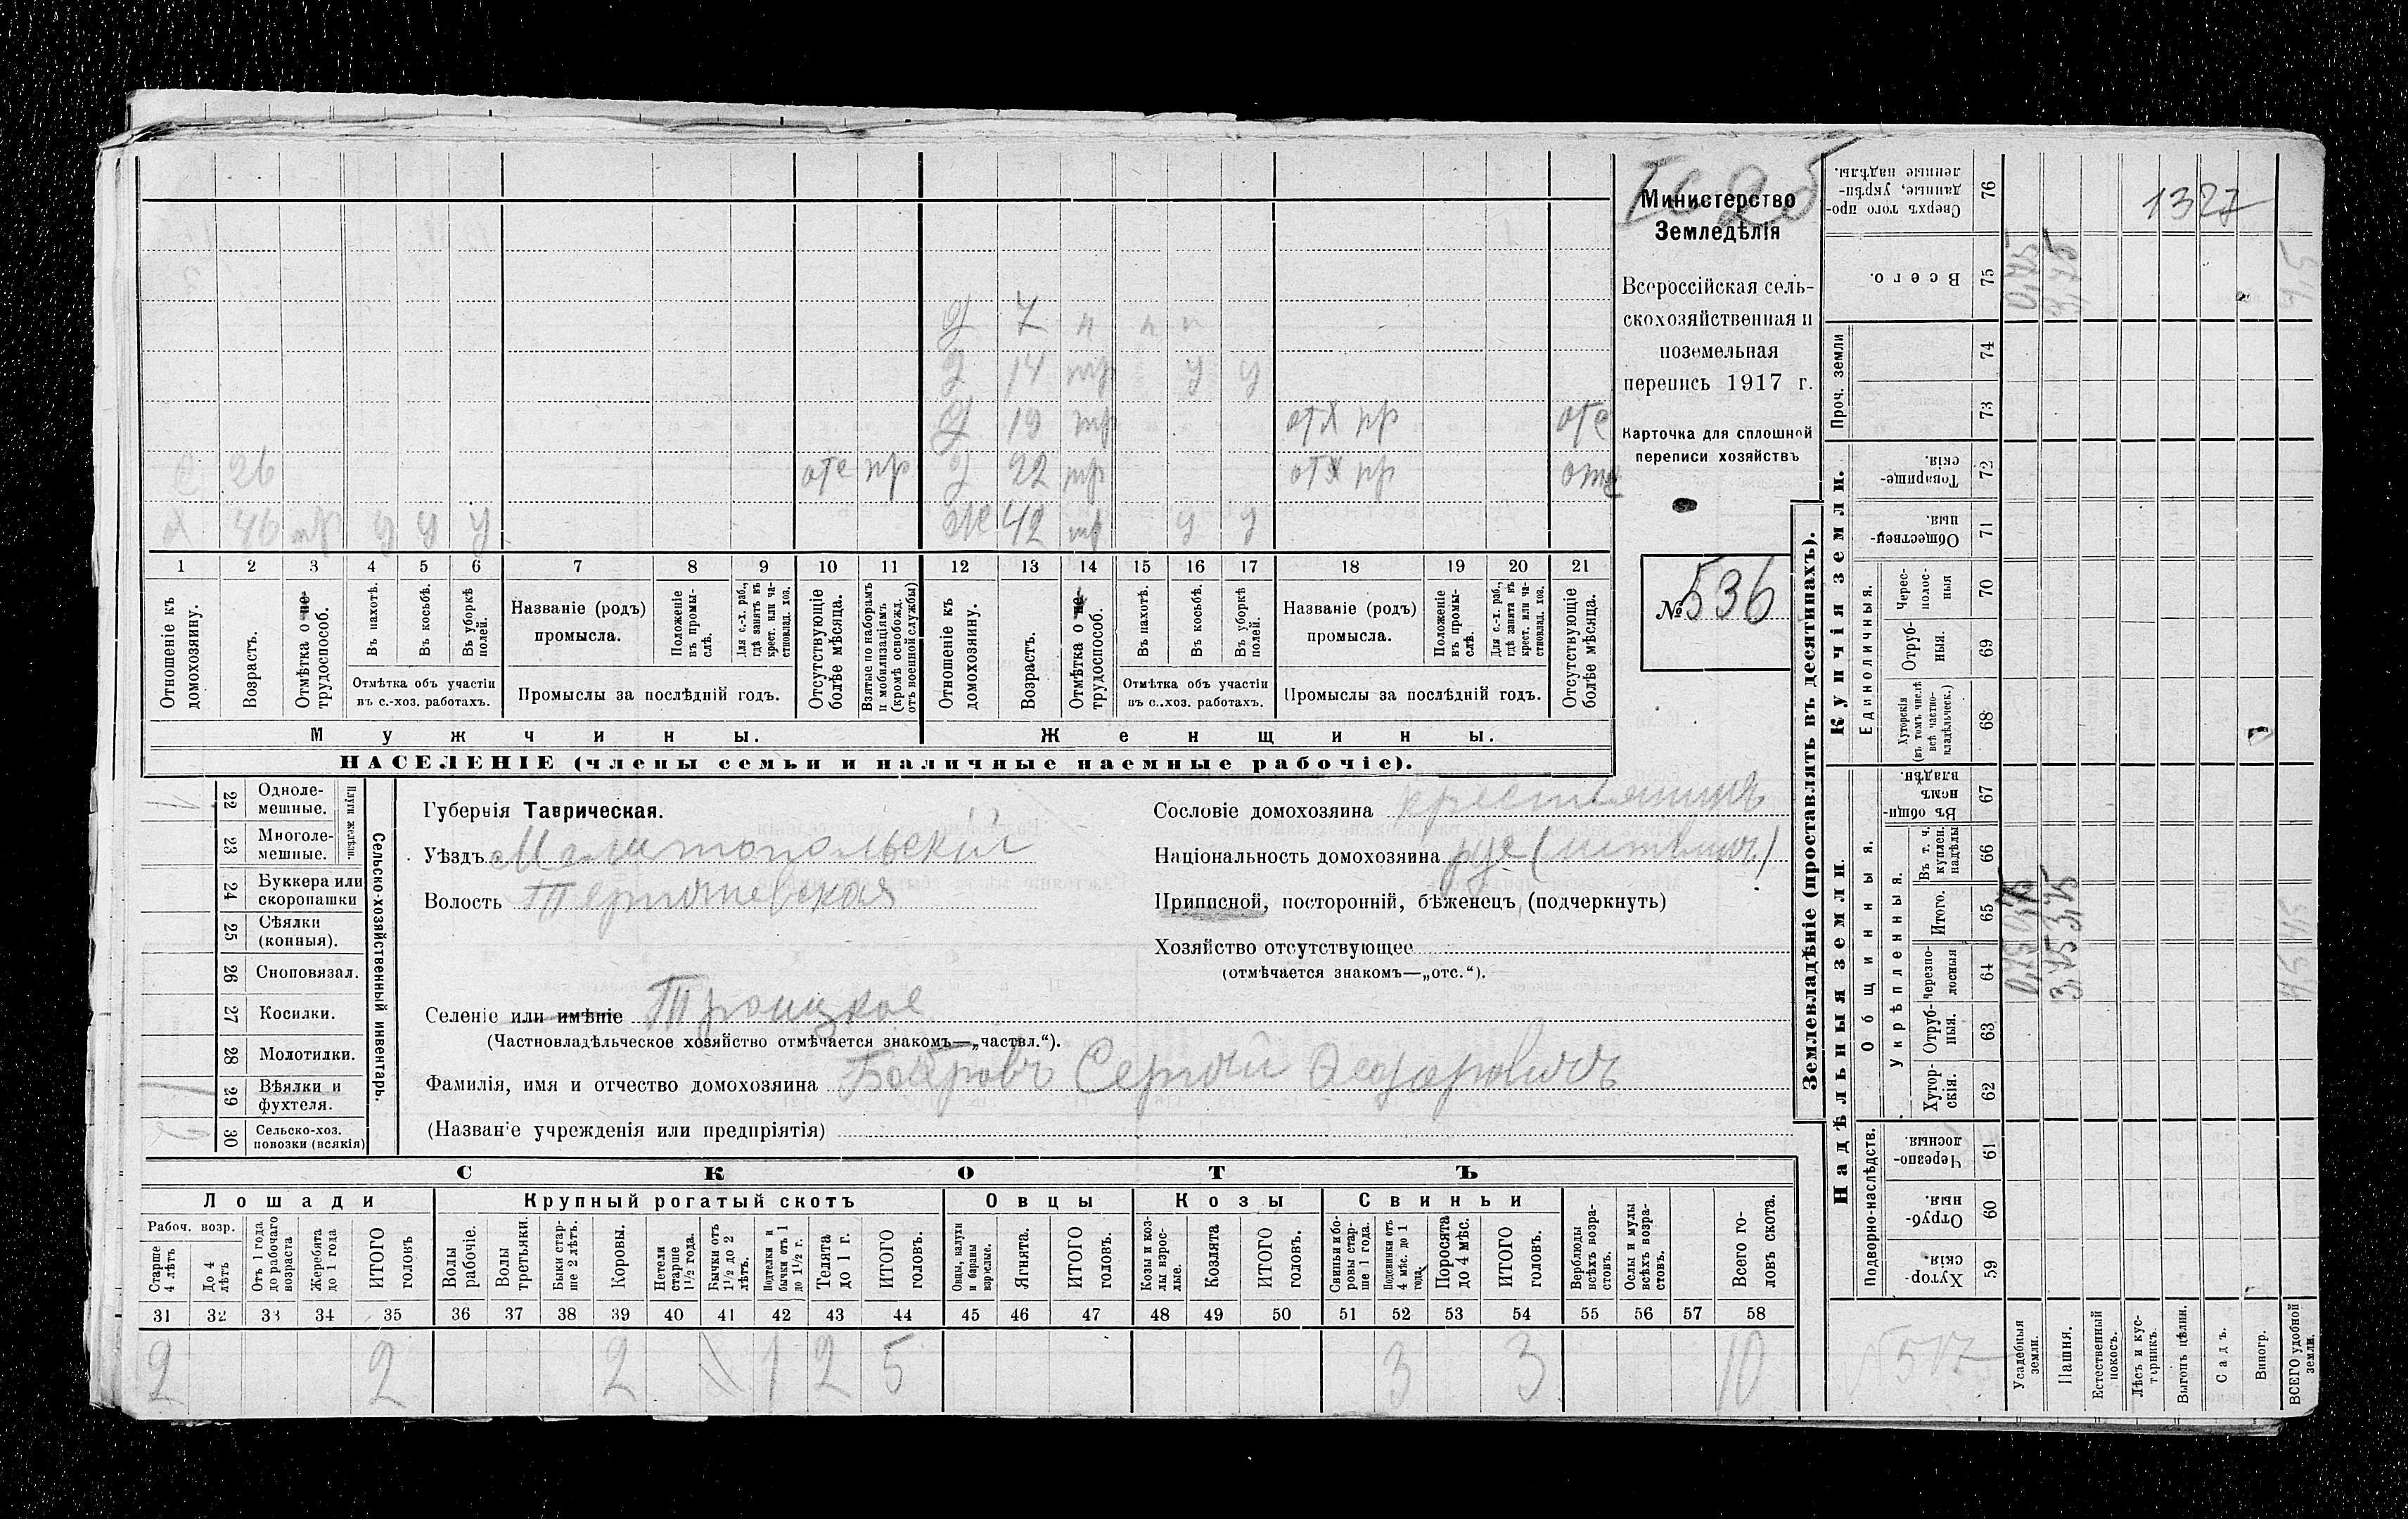 1327
д 7 н н н
д 14 тр у у
д 19 тр отх пр отс
с 26 отс пр д 22 тр отх пр отс
х 46 тр у у у ж 42 тр у у
1 2 3 4 5 6 7 8 9 10 11 12 13 14 15 16 17 18 19 20 21
Отношеніе къ домохозяину.
Возрастъ.
Отмѣтка о не-трудоспособ.
Въ пахотѣ.
Въ косьбѣ.
Въ уборкѣ полей.
Отмѣтка объ участіи
въ с.-хоз. работахъ.
Названіе (родъ)
промысла.
Положеніе въ промы-слѣ.
Для с.-х. раб., гдѣ занятъ въ крест. или ча-стновлад. хоз.
Промыслы за послѣдній годъ.
Отсутствующіе болѣе мѣсяца.
Взятые по наборамъ и мобилизаціямъ (кромѣ освобожд. отъ военной службы)
Отношеніе къ домохозяину.
Возрастъ.
Отмѣтка о не-трудоспособ.
Въ пахотѣ.
Въ косьбѣ.
Въ уборкѣ полей.
Отмѣтка объ участіи
въ с..хоз. работахъ.
Названіе (родъ)
промысла.
Положеніе въ промы-слѣ.
Для с.-х. раб., гдѣ занята въ крест. или ча-стновлад. хоз.
Промыслы за послѣдній годъ.
Отсутствующіе болѣе мѣсяца.
Мужчины. Женщины.
НАСЕЛЕНІЕ (члены семьи и наличные наемные рабочіе).
Министерство
Земледѣлія
Всероссійская сель-
скохозяйственная и
поземельная
перепись 1917 г.
Карточка для сплошной
переписи хозяйствъ
№ 536
1 22 Одноле-мешные.
23 Многоле-мешные.
Плуги желѣзн.
24 Буккера или скоропашки
25 Сѣялки (конныя).
26 Сноповязал.
27 Косилки.
28 Молотилки.
1 29 Вѣялки и фухтеля.
2 30 Сельско-хоз. повозки (всякія)
Сельско-хозяйственный инвентарь.
Губернія Таврическая.
Уѣздъ Мелитопольскій
Волость Терпеневская
Селеніе или имѣніе Троицкое
(Частновладѣльческое хозяйство отмѣчается знакомъ—„частвл.“).
Фамилія, имя и отчество домохозяина Бобровъ Сергѣй
(Названіе учрежденія или предпріятія)
Сословіе домохозяина крестьянинъ
Національность домохозяина рус
Приписной, посторонній, бѣженецъ (подчеркнуть)
Хозяйство отсутствующее
(отмѣчается знакомъ—„отс.“).
СКОТЪ
Лошади Крупный рогатый скотъ Овцы Козы Свиньи
Рабоч. возр.
Старше 4 лѣтъ
До 4 лѣтъ
Отъ 1 года до рабочаго возраста
Жеребята до 1 года
ИТОГО головъ
Волы рабочіе.
Волы третьяки.
Быки стар-ше 2 лѣтъ.
Коровы.
Нетели старше 1½ года.
Бычки отъ 1½ до 2 лѣтъ.
Подтелки и бычки отъ 1 до 1½ г.
Телята до 1 г.
ИТОГО головъ.
Овцы, валухи и бараны взрослые.
Ягнята.
ИТОГО головъ.
Козы и коз-лы взрос-лые.
Козлята
ИТОГО головъ.
Свиньи и бо-ровы стар-ше 1 года.
Подсвинки отъ 4 мѣс. до 1 года.
Поросята до 4 мѣс.
ИТОГО головъ.
Верблюды всѣхъ возра-стовъ.
Ослы и мулы всѣхъ возра-стовъ.
Всего го-ловъ скота.
31 32 33 34 35 36 37 38 39 40 41 42 43 44 45 46 47 48 49 50 51 52 53 54 55 56 57 58
2 2 2 1 2 5 3 3 10
Землевладѣніе (проставлять въ десятинахъ).
Надѣльныя земли. Купчія земли. Проч. земли
Подворно-наслѣдств. Общинныя. Укрѣпленныя. Единоличныя.
Сверхъ того про-данные, укрѣп-ленные надѣлы. 76
Всего. 75 0,75 3,75 4,5
74
73
Товарище-скія. 72
Обществен-ныя. 71
Черес-полос-ныя 70
Отруб-ныя. 69
Хуторскія (въ томъ числѣ всѣ частно-владѣльческ.) 68
Въ общи-номъ владѣн. 67
Въ т. ч. куплен. надѣлы 66
Итого. 65 3,75
Черезпо-лосныя 64 0,75 3,75 4,5
Отруб-ныя. 63
Хутор-скія. 62
Черезпо-лосныя. 61
Отруб-ныя. 60
Хутор-скія. 59
Усадебныя земли.
Пашня.
Естественный покосъ.
Лѣсъ и кус-тарникъ.
Выгонъ цѣлин.
Садъ.
Виногр.
ВСЕГО удобной земли.